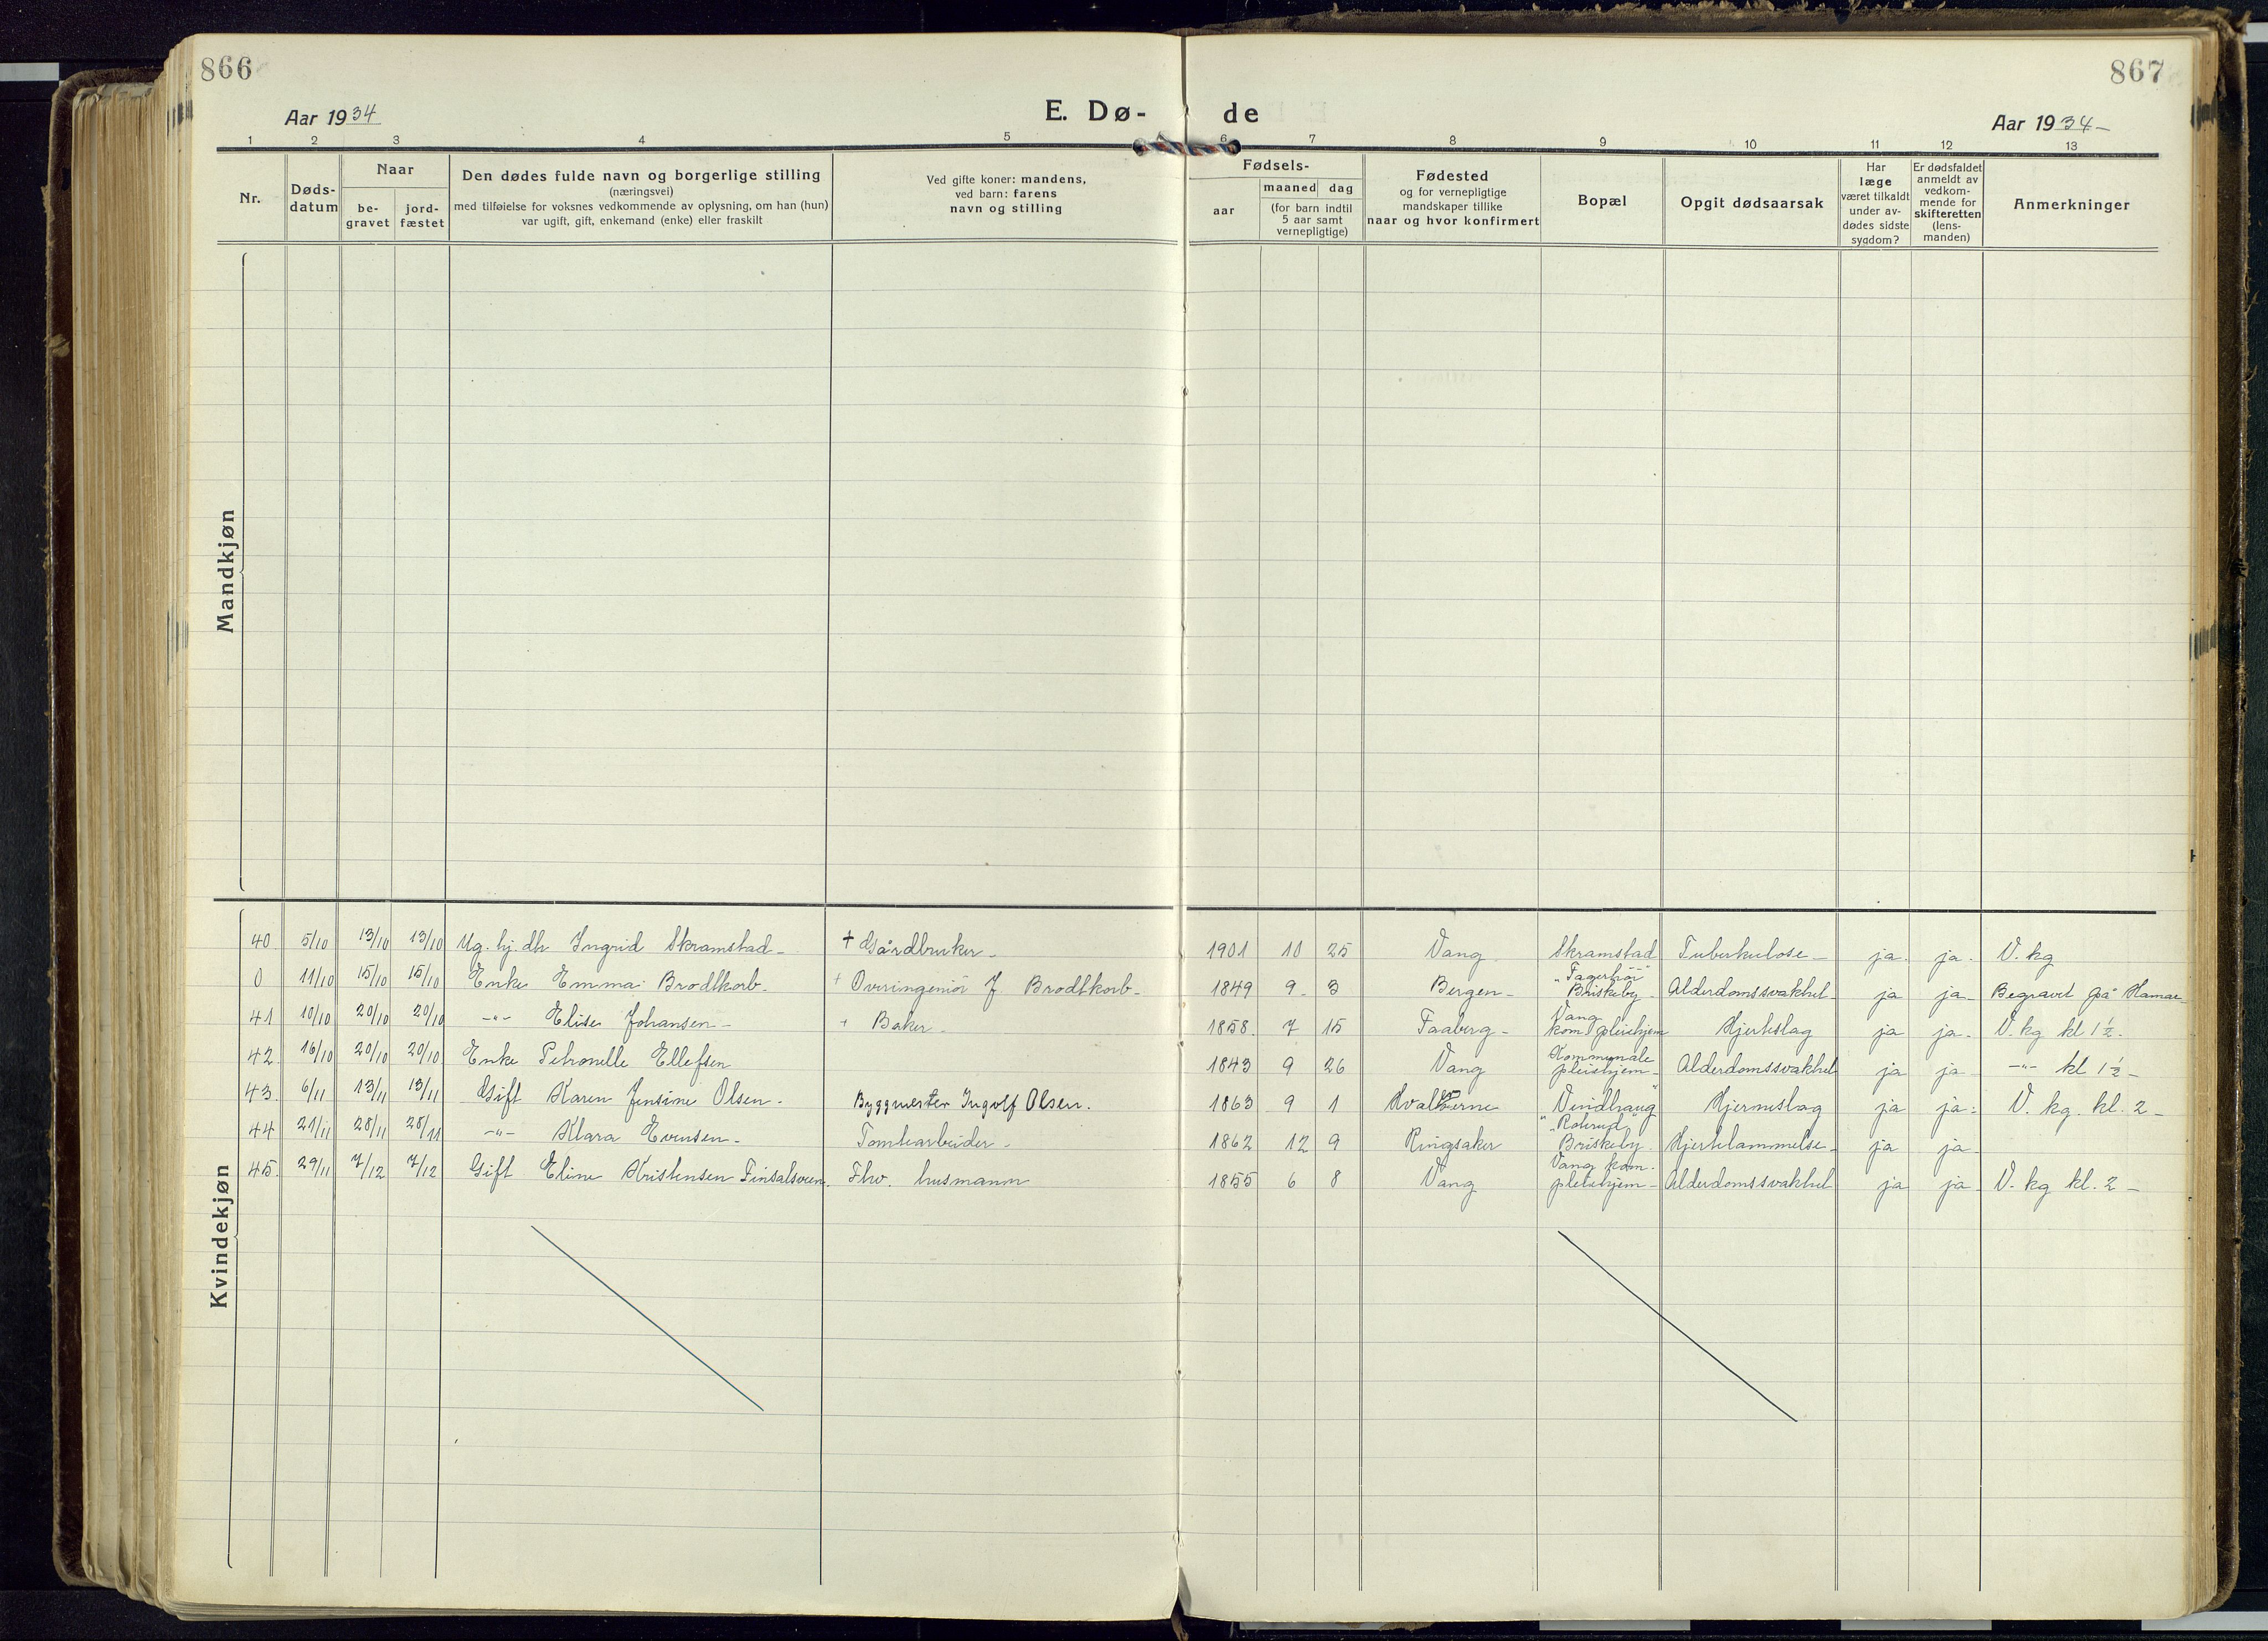 866
867
Aar 1934
E. Dø-
de
Aar 1934-
1 2 3 4 5 6 7 8 9 10 11 12 13
Nr.
Døds-
datum
Naar
be-
gravet
jord-
fæstet
Den dødes fulde navn og borgerlige stilling
(næringsvei)
med tilføielse for voksnes vedkommende av oplysning, om han (hun)
var ugift, gift, enkemand (enke) eller fraskilt
Ved gifte koner: mandens,
ved barn: farens
navn og stilling
Fødsels-
aar
maaned dag
(for barn indtil
5 aar samt
vernepligtige)
Fødested
og for vernepligtige
mandskaper tillike
naar og hvor konfirmert
Bopæl
Opgit dødsaarsak
Har
læge
været tilkaldt
under av-
dødes sidste
sygdom?
Er dødsfaldet
anmeldt av
vedkom-
mende for
skifteretten
(lens-
manden)
Anmerkninger
Mandkjøn
Kvindekjøn
40 5/10 13/10 13/10 Ug. hj. dtr Ingrid Skramstad - + Gårdbruker - 1901 10 25 Vang Skramstad Tuberkulose - ja. ja. V. kg
0 11/10 15/10 15/10 Enke Emma Brodtkorb - + Overingeniør J. Brodtkorb - 1849 9 3 Bergen - "Fagerhøi" Briskeby - Alderdomssvakhet - ja ja - Begravet på Hamar
41 10/10 20/10 20/10 -"- Elise Johansen - + Baker - 1858 7 15 Faaberg - Vang kom. pleiehjem Hjerteslag ja ja. V. kg kl 1½ -
42 16/10 20/10 20/10 Enke Petronelle Ellefsen 1843 9 26 Vang Kommunale pleiehjem - Alderdomssvakhet ja ja -"- kl 1½ -
43 6/11 13/11 13/11 Gift Karen Jensine Olsen - Byggmester Ingolf Olsen. 1863 9 1 Vindhaug ja ja. V. kg. kl. 2 -
44 21/11 28/11 28/11 -"- Klara Evensen - Tomtearbeider - 1862 12 9 Ringsaker Briskeby - Hjertelammelse - ja ja
45 29/11 7/12 7/12 Gift Eline Kristensen Finsalsveen. Fhv. husmann 1855 6 8 Vang Vang kom. pleiehjem - Alderdomssvakhet ja ja. V. kg kl. 2 -